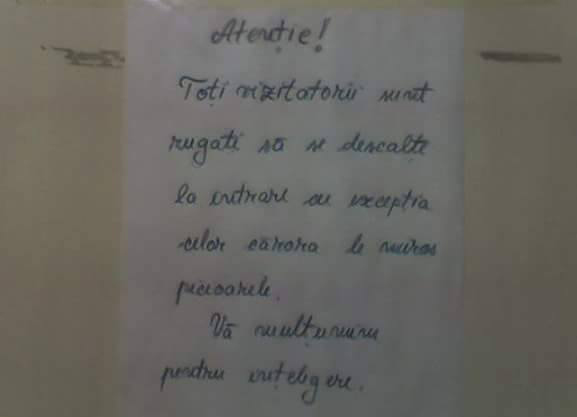 Atenție!
Toți vizitatorii sunt
rugați să se descalțe
la intrare cu excepția
celor cărora le miros
picioarele.
Vă mulțumim
pentru înțelegere.